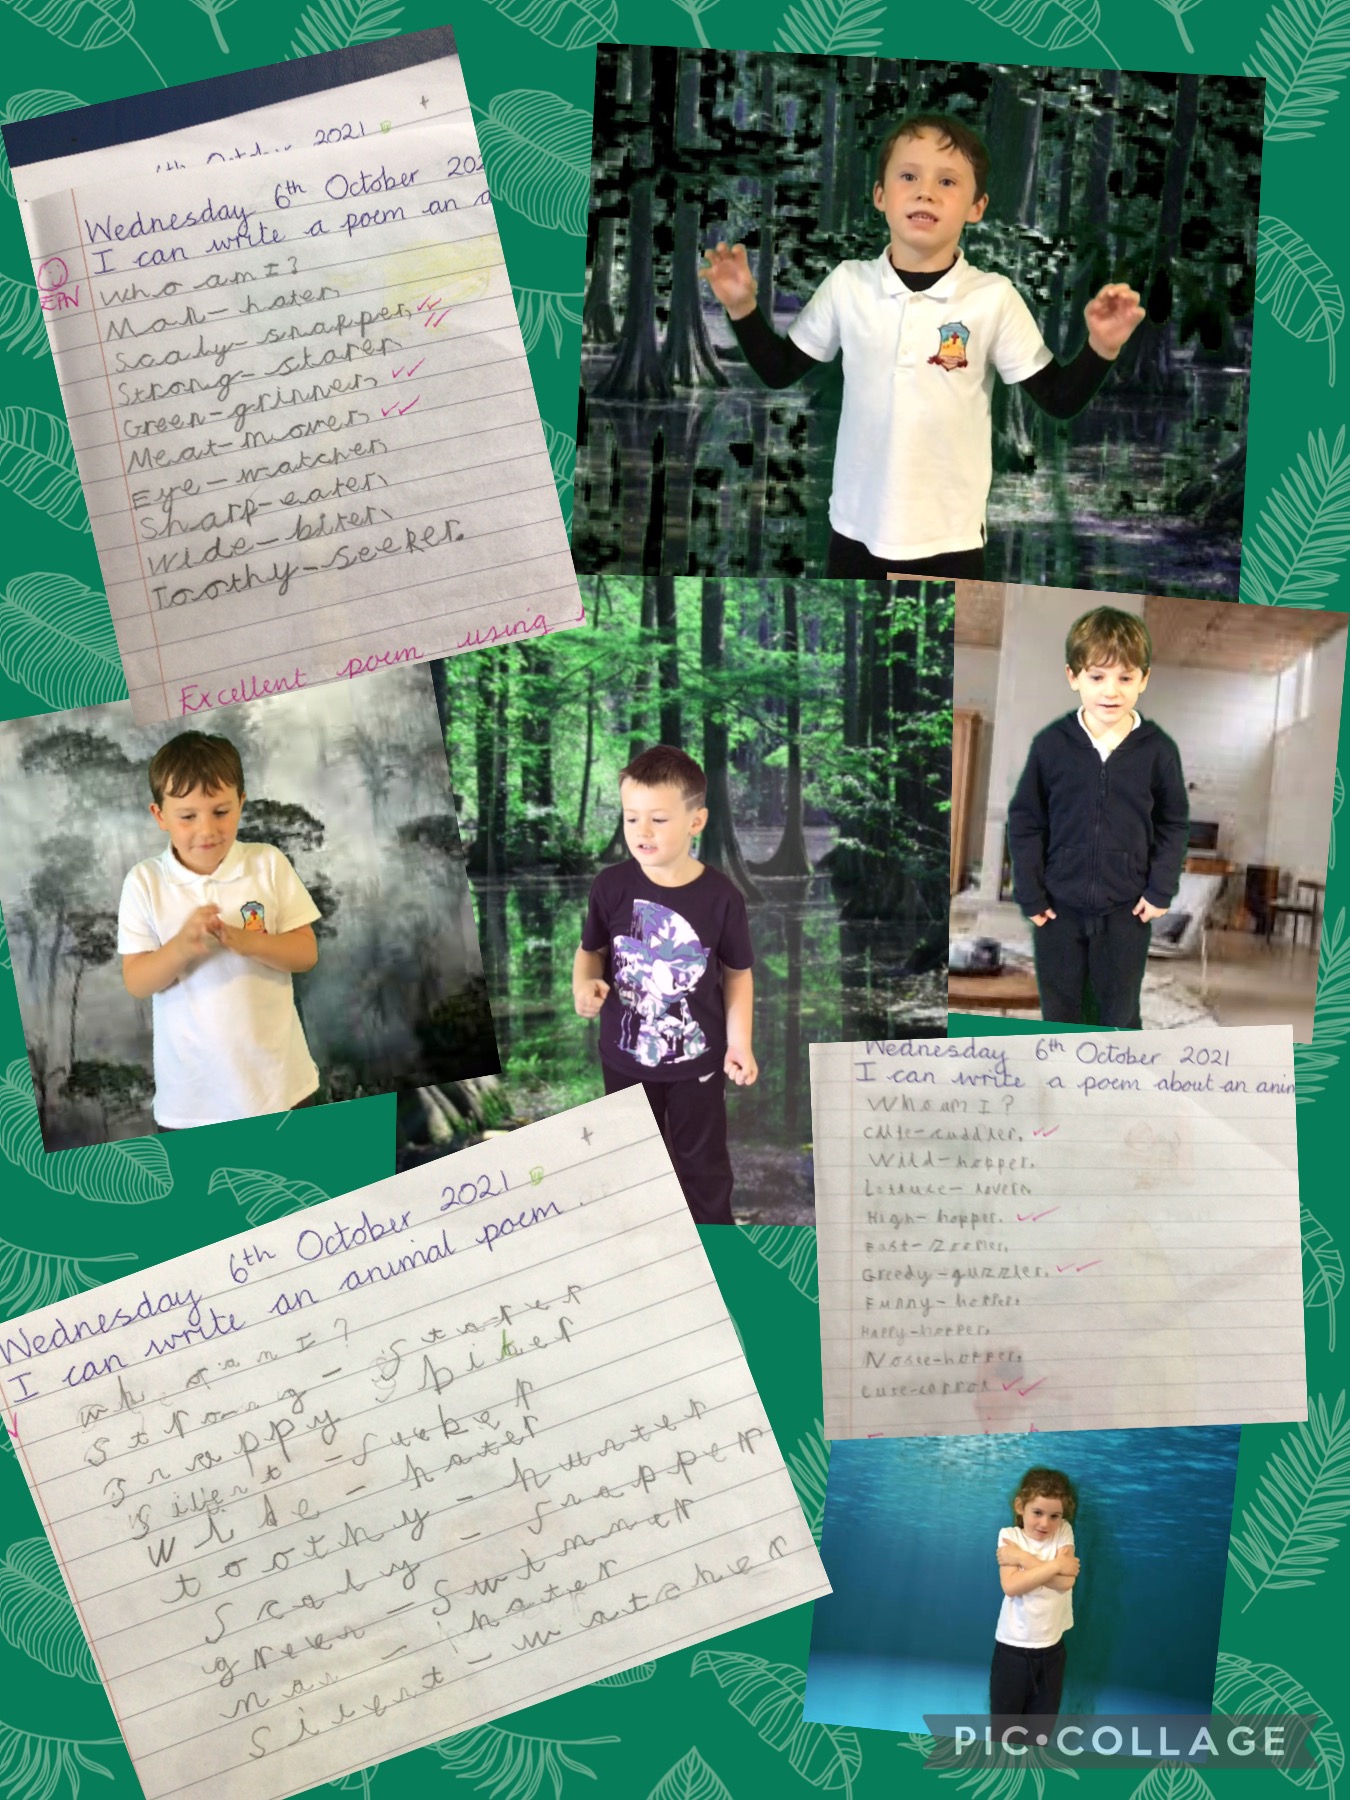 6th October 2021
Wednesday 6th October 202
I can write a poem an a
EPN
Who am I?
Man-hater,
Scaly-snapper,
Strong-starer,
Green-grinner,
Meat-mover,
Eye-watcher,
Sharp-eater,
Wide-biter,
Toothy-seeker.
Excellent poem using
Wednesday 6th October 2021
I can write a poem about an anim
Who am I?
Cute-cuddler,
Wild-hopper,
Lettuce-lover,
High-hopper,
Fast-zoomer,
Greedy-guzzler,
Funny-hopper,
Happy-hopper,
Nosie-hopper,
Cute-carrot
Wednesday 6th October 2021
I can write an animal poem.
who am I?
Strong-Starer
Snappy biter
Silent-Seeker
Wide-hater
toothy-hunter
Scaly-Snapper
green-Swimmer
man-hater
Silent-watcher
PIC•COLLAGE